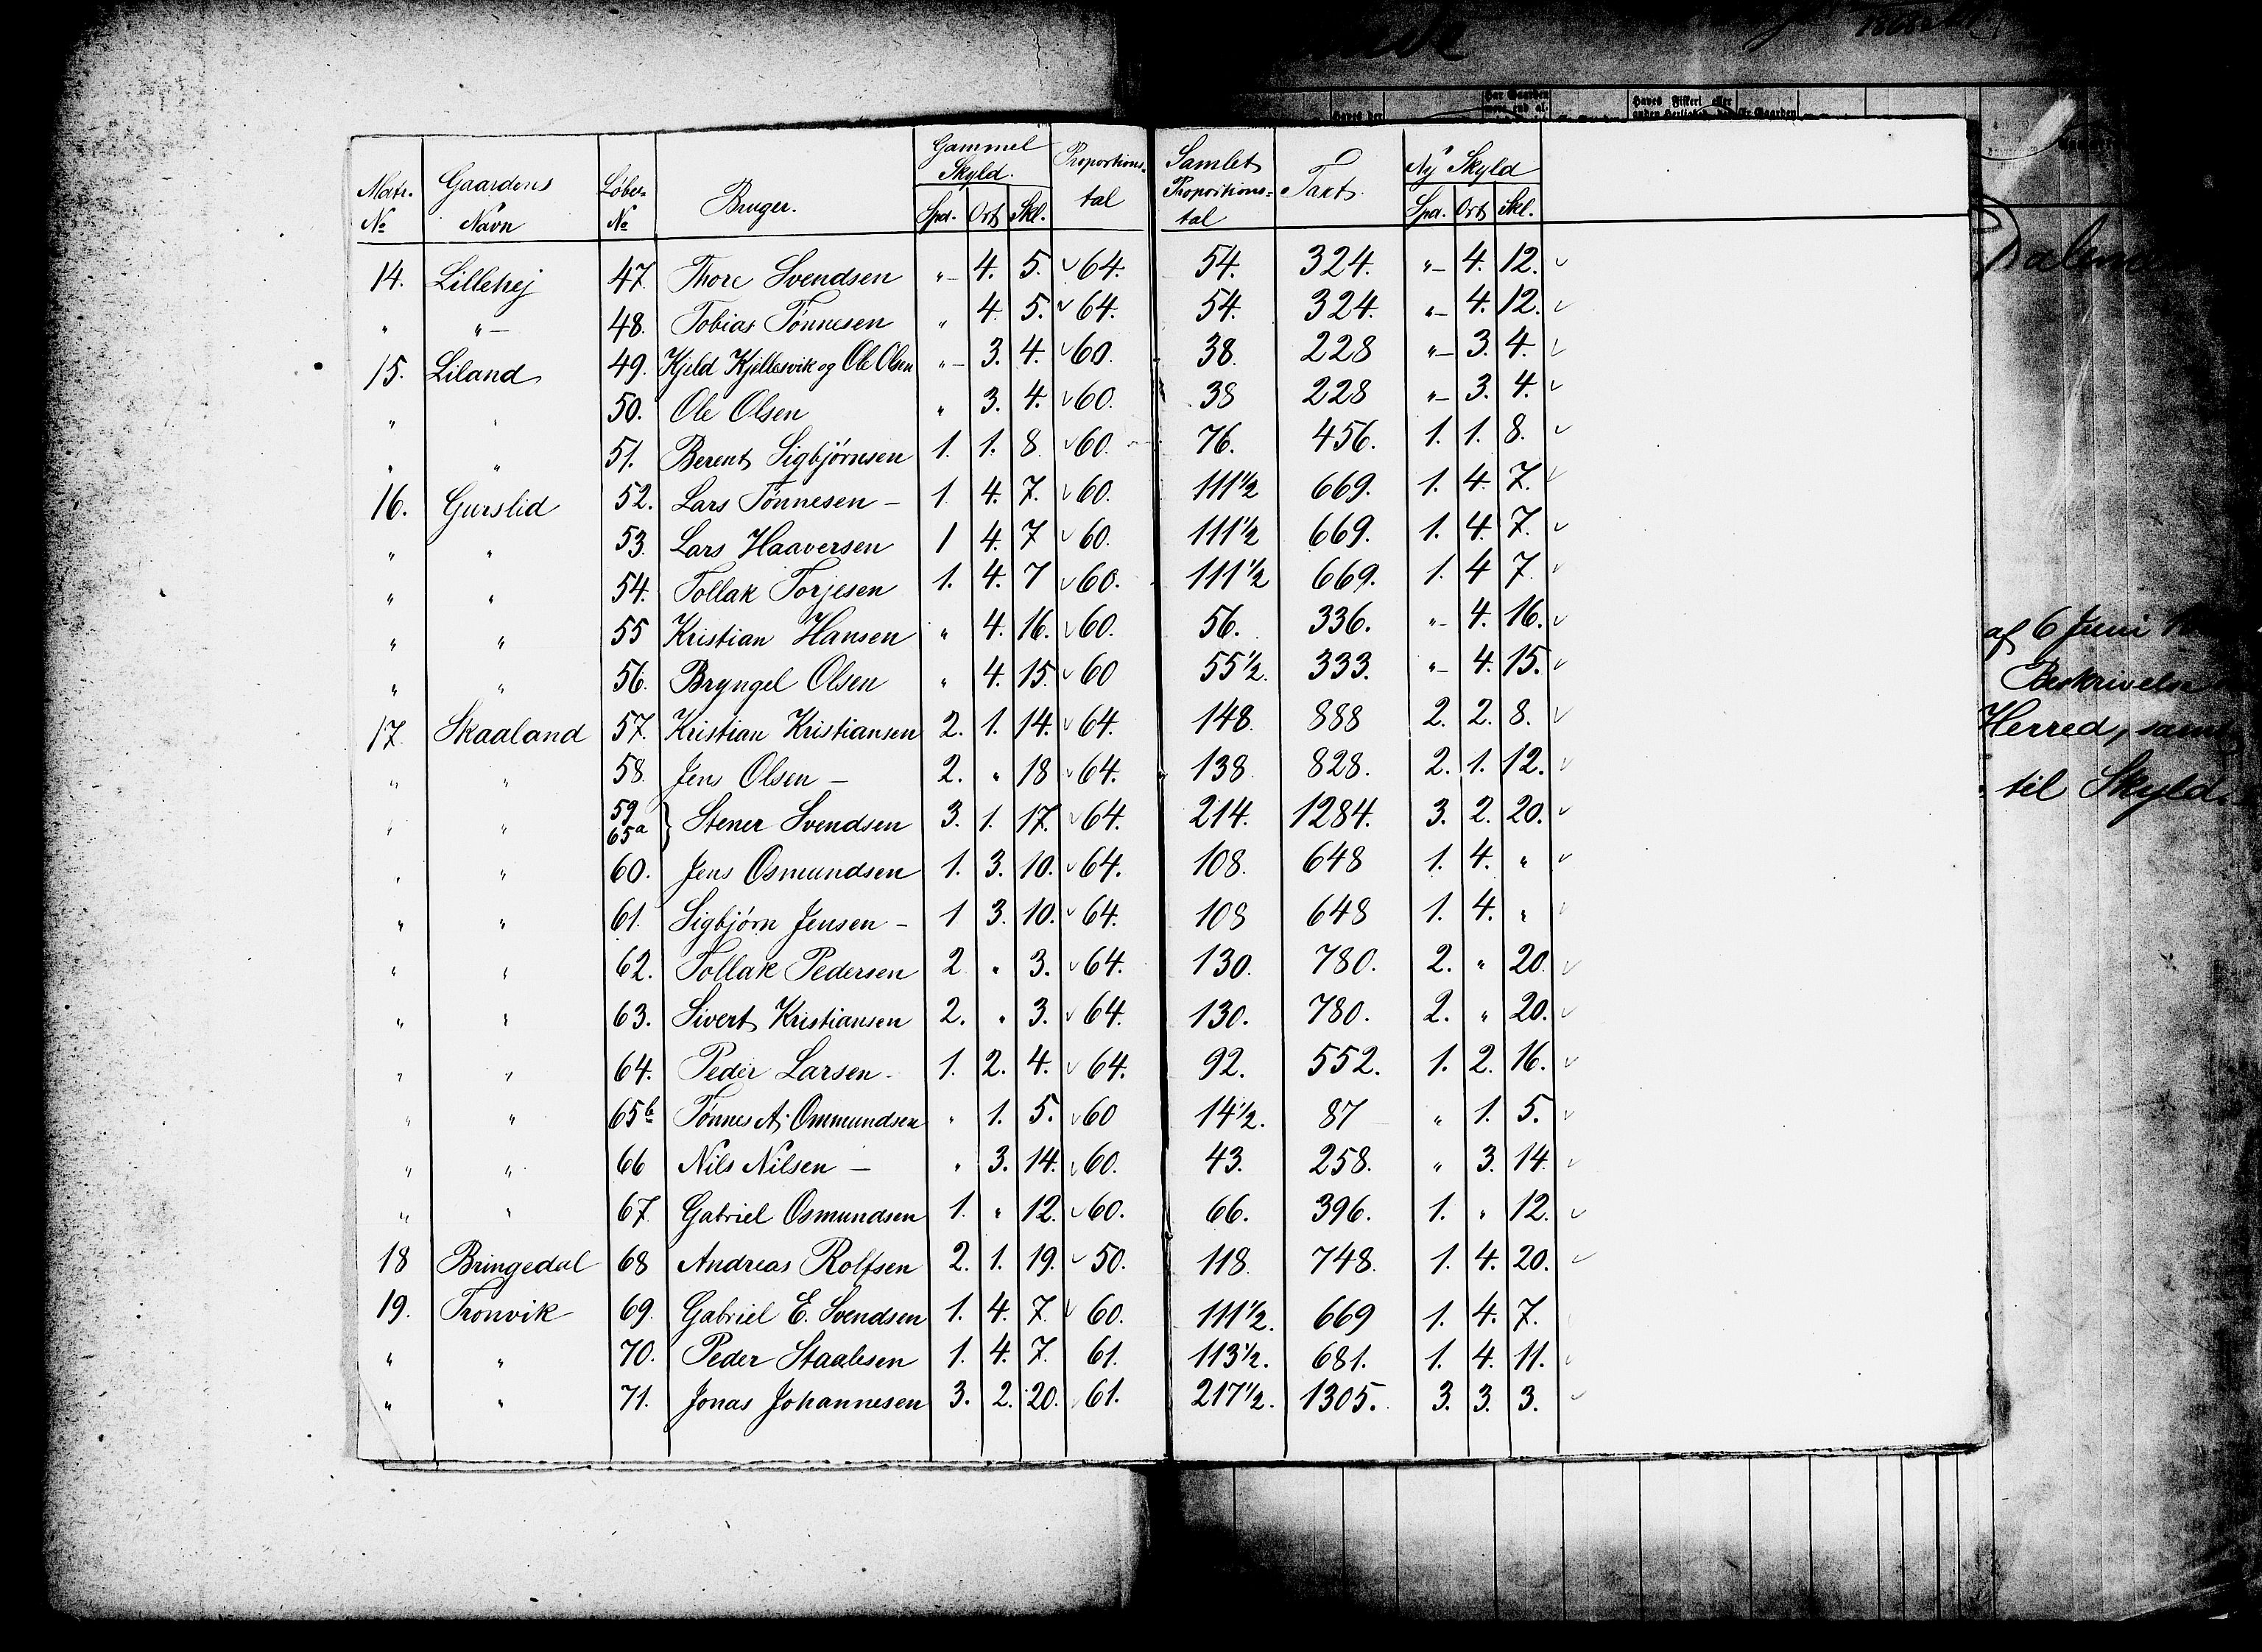 Matr. No | Gaardens Navn | Løbe- No | Bruger. | Gammel Skyld. Spd. | Ort | Skl. | Proportions- tal | Samlet Proportions- tal | Taxt. | Ny Skyld Spd. | Ort | Skl.
14. | Lillehej | 47. | Thore Svendsen | " | 4. | 5. | 64. | 54. | 324. | " | 4. | 12.
" | " | 48. | Tobias Tønnesen | " | 4. | 5. | 64. | 54. | 324. | " | 4. | 12.
15. | Liland | 49. | Kjeld Kjellesvik og Ole Olsen | " | 3. | 4. | 60. | 38. | 228 | " | 3. | 4.
" | " | 50. | Ole Olsen | " | 3. | 4. | 60. | 38 | 228 | " | 3. | 4.
" | " | 51. | Berent Sigbjørnsen | 1. | 1. | 8. | 60. | 76. | 456. | 1. | 1. | 8.
16. | Gurslid | 52. | Lars Tønnesen | 1 | 4. | 7. | 60. | 111½ | 669. | 1. | 4. | 7.
" | " | 53. | Lars Haaversen | 1 | 4. | 7 | 60. | 111½ | 669. | 1. | 4. | 7.
" | " | 54. | Tollak Torjesen | 1. | 4. | 7 | 60. | 111½ | 669. | 1. | 4 | 7.
" | " | 55 | Kristian Hansen | " | 4. | 16. | 60. | 56. | 336. | " | 4. | 16.
" | " | 56. | Bryngel Olsen | " | 4. | 15. | 60 | 55½. | 333. | " | 4. | 15.
17. | Skaaland | 57. | Kristian Kristiansen | 2. | 1. | 14. | 64. | 148. | 888 | 2. | 2. | 8.
" | " | 58. | Jens Olsen | 2. | " | 18 | 64. | 138. | 828. | 2. | 1. | 12.
" | " | 59 65a } | Stener Svendsen | 3. | 1. | 17. | 64. | 214. | 1284. | 3. | 2. | 20.
" | " | 60. | Jens Osmundsen | 1. | 3. | 10. | 64. | 108. | 648 | 1. | 4. | "
" | " | 61. | Sigbjørn Jensen | 1 | 3. | 10. | 64. | 108 | 648 | 1. | 4. | "
" | " | 62. | Tollak Pedersen | 2 | " | 3. | 64. | 130. | 780. | 2. | " | 20.
" | " | 63. | Sivert Kristiansen | 2. | " | 3. | 64. | 130. | 780. | 2. | " | 20.
" | " | 64. | Peder Larsen | 1. | 2. | 4. | 64. | 92. | 552. | 1. | 2. | 16.
" | " | 65b | Tønnes A. Ommundsen | " | 1. | 5. | 60 | 14½. | 87 | " | 1. | 5.
" | " | 66 | Nils Nilsen | " | 3. | 14. | 60. | 43. | 258. | " | 3. | 14.
" | " | 67 | Gabriel Osmundsen | 1. | " | 12. | 60. | 66. | 396. | 1. | " | 12.
18 | Bringedal | 68 | Andreas Rolfsen | 2. | 1. | 19. | 50. | 118. | 748. | 1. | 4. | 20.
19. | Tronvik | 69. | Gabriel E. Svendsen | 1. | 4. | 7. | 60. | 111½. | 669 | 1. | 4. | 7.
" | " | 70. | Peder Staalesen | 1. | 4. | 7. | 61. | 113½. | 681. | 1. | 4. | 11.
" | " | 71. | Jonas Johannesen | 3. | 2. | 20. | 61. | 217½. | 1305. | 3. | 3. | 3.
af 6 Juni
Beskrivelse
Herred, samt
til Skyld